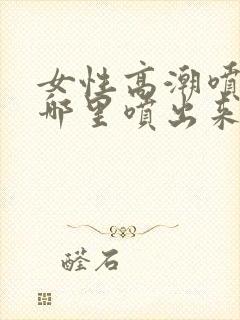 女性高潮喷
哪里喷出来
醛石